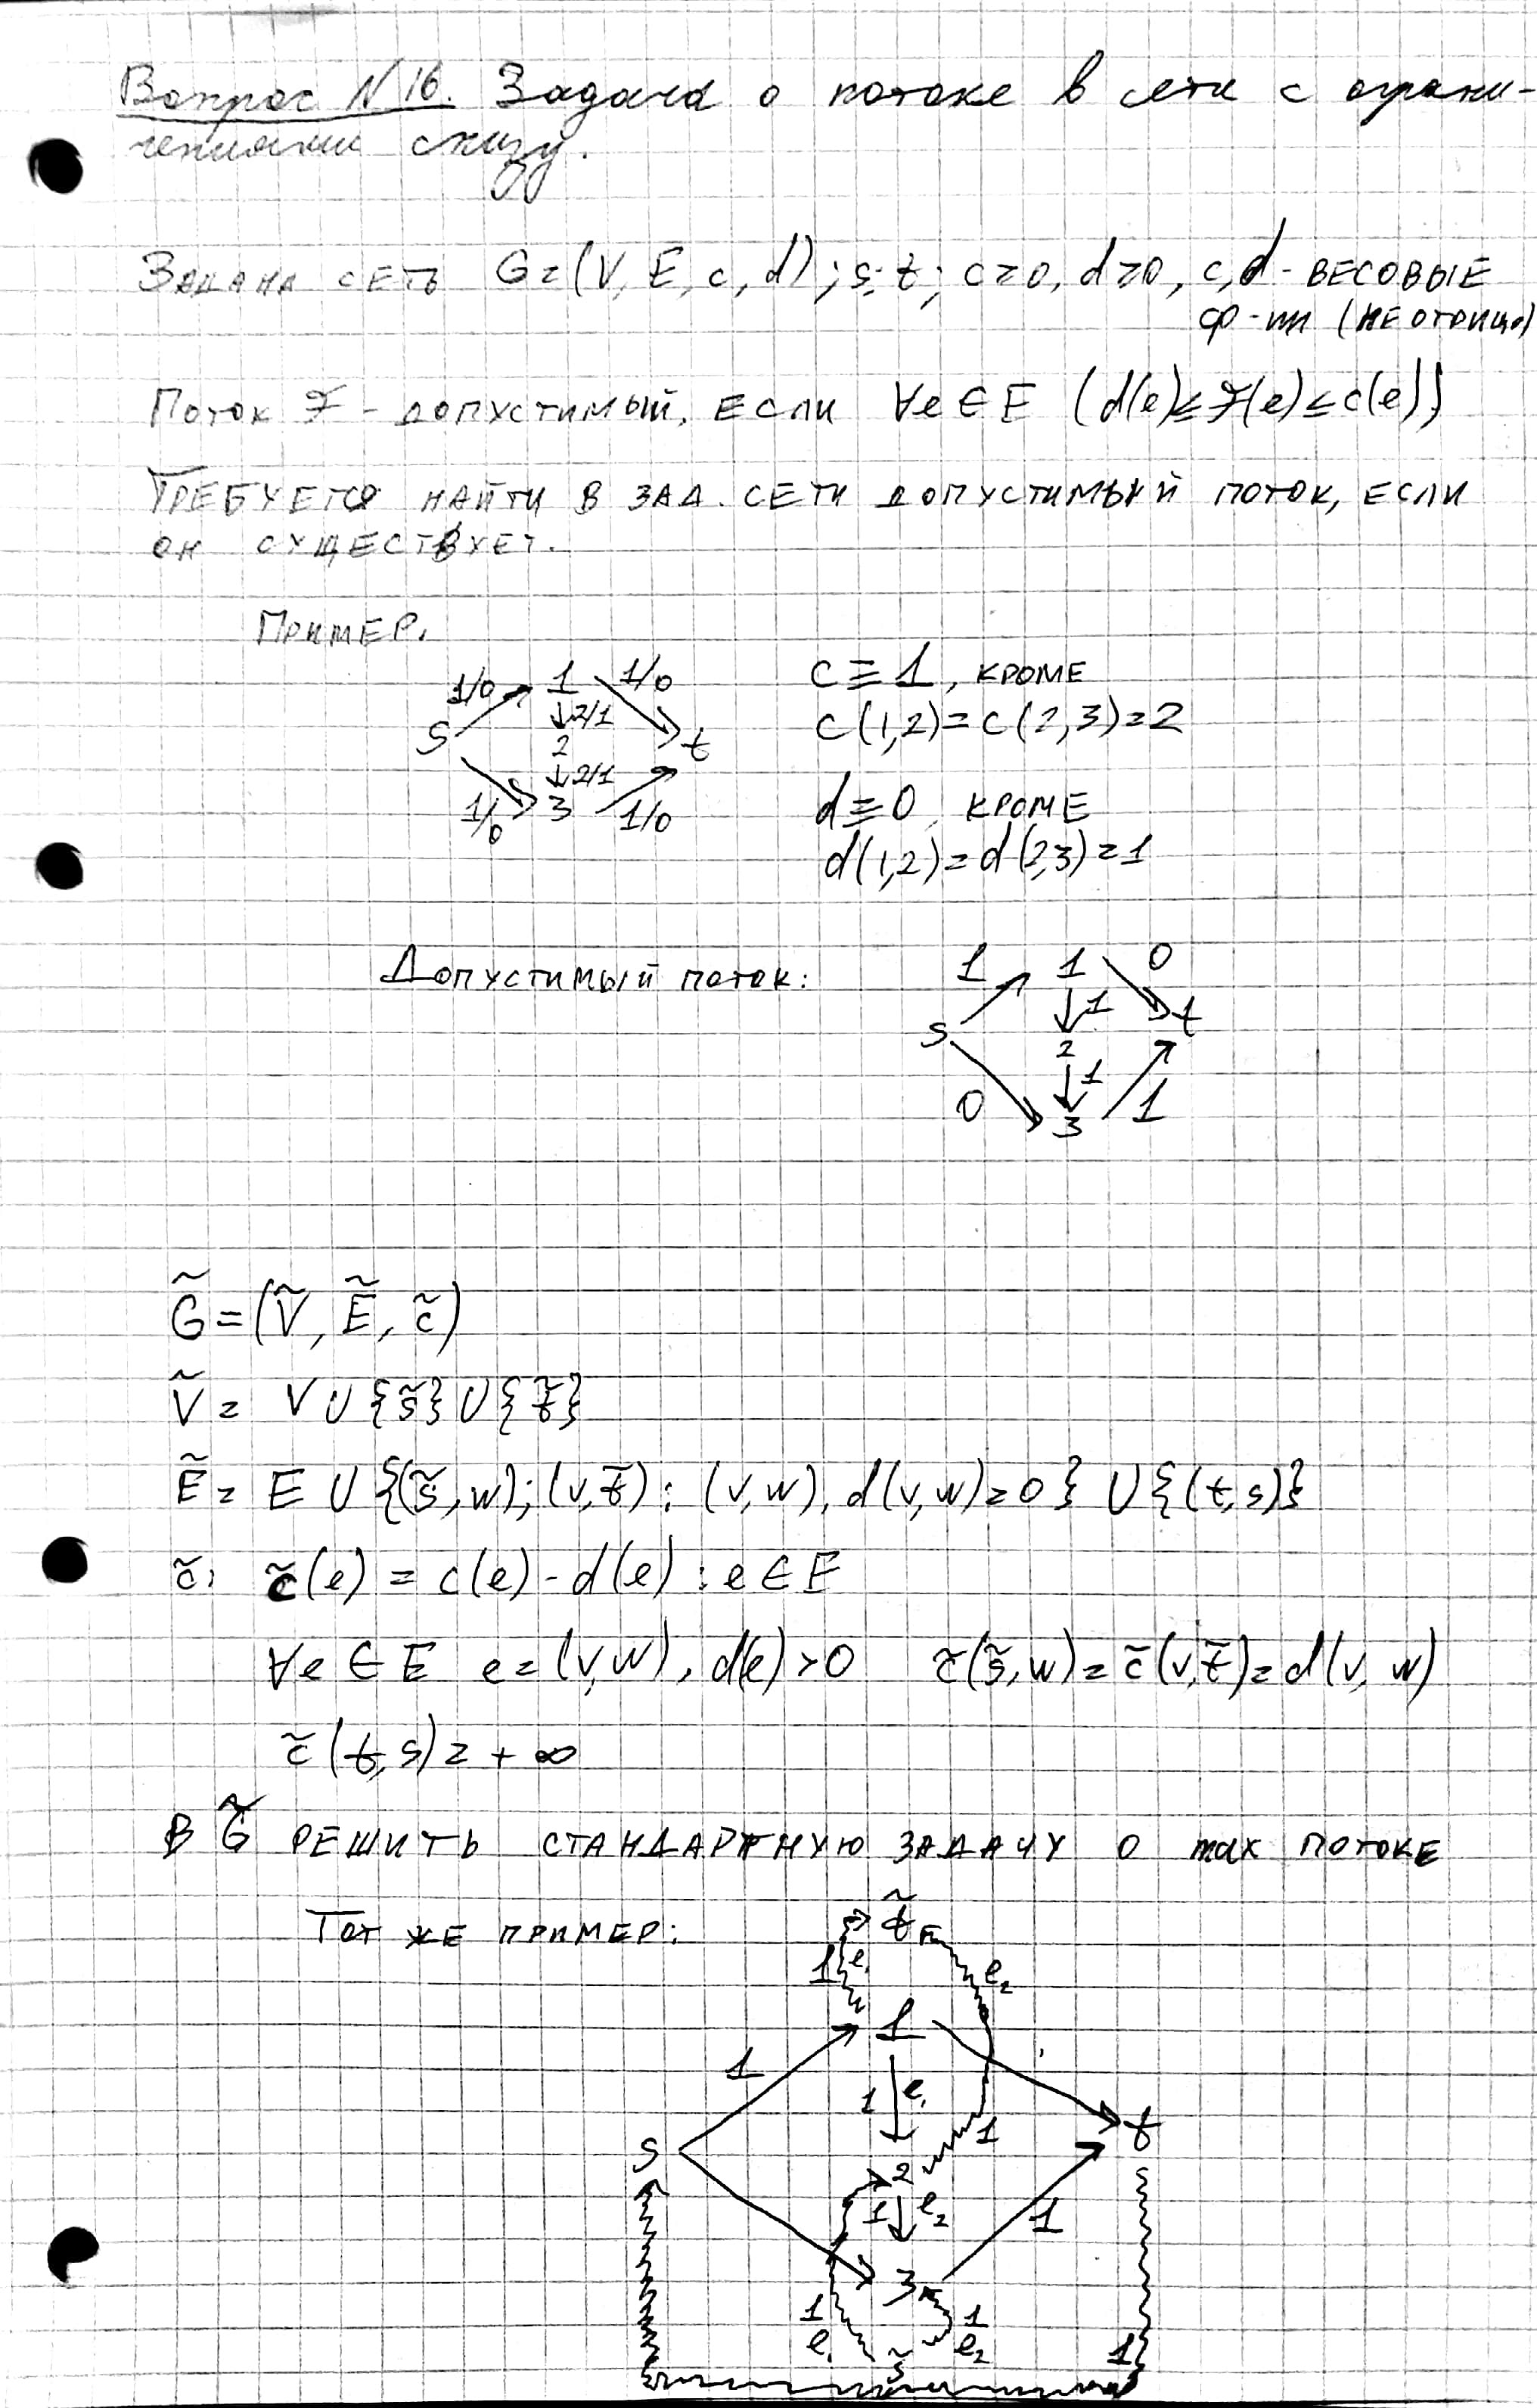 Вопрос N 16. Задача о потоке в сети с ограни-
чениями снизу.
ЗАДАНА СЕТЬ G=(V, E, c, d); s; t; c≥0, d≥0, c,d - ВЕСОВЫЕ
Ф-ИИ (НЕОТРИЦ.)
ПОТОК F - ДОПУСТИМЫЙ, ЕСЛИ ∀e∈E (d(e)≤F(e)≤c(e))
ТРЕБУЕТСЯ НАЙТИ В ЗАД. СЕТИ ДОПУСТИМЫЙ ПОТОК, ЕСЛИ
ОН СУЩЕСТВУЕТ.
ПРИМЕР.
1/0 1 1/0
↓2/1
s 2 t
↓2/1
1/0 3 1/0
c≡1, КРОМЕ
c(1,2)=c(2,3)=2
d≡0, КРОМЕ
d(1,2)=d(2,3)=1
ДОПУСТИМЫЙ ПОТОК:
1 1 0
↓1
s 2 t
↓1
0 3 1
G̃=(Ṽ, Ẽ, c̃)
Ṽ = V∪{s̃}∪{t̃}
Ẽ = E∪{(s̃,w);(v,t̃): (v,w), d(v,w)=0}∪{(t,s)}
c̃: c̃(e) = c(e)-d(e) : e∈E
∀e∈E e=(v,w), d(e)>0 c̃(s̃,w)=c̃(v,t̃)=d(v,w)
c̃(t,s)=+∞
В G̃ РЕШИТЬ СТАНДАРТНУЮ ЗАДАЧУ О max ПОТОКЕ
ТОТ ЖЕ ПРИМЕР:
t̃
1 e₁ e₂
1
1
1 e₁ 1
s t
2
1 e₂ 1
3
1 e₁ 1 e₂
s̃ 1